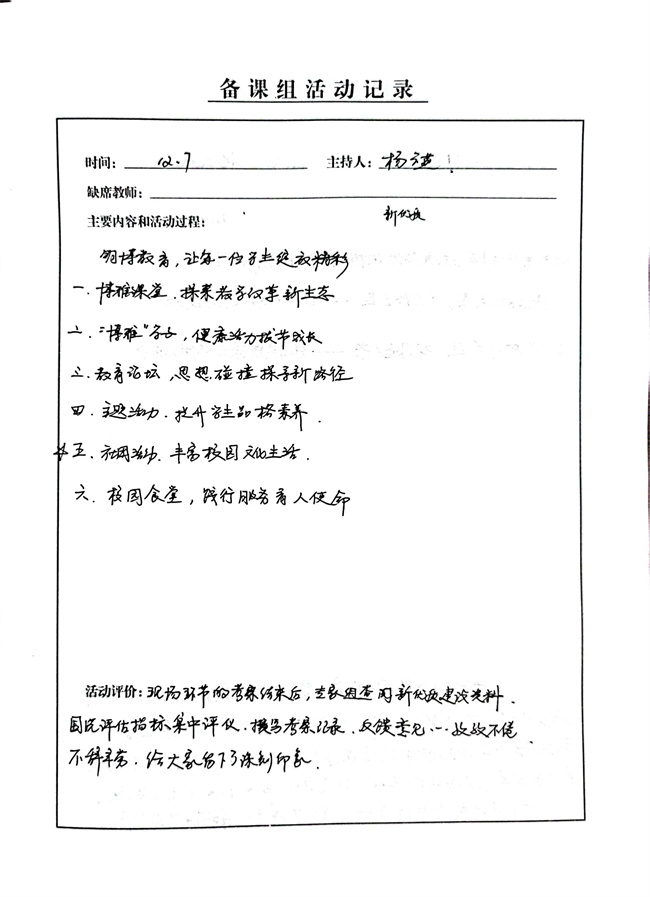 备课组活动记录
时间: 12.7 主持人: 杨
缺席教师:
主要内容和活动过程: 新优质
博教育，让每一位学生绽放精彩
一. 博雅课堂. 探索教学改革新生态
二. "博雅"学子，健康活力拔节成长
三. 教育论坛，思想碰撞探寻新路径
四. 主题活动. 提升学生品格素养.
五. 社团活动. 丰富校园文化生活.
六. 校园食堂，践行服务育人使命
活动评价: 现场环节的考察结束后，专家组查阅新优质建设资料.
评估指标集中评议. 撰写考察记录、反馈意见… 孜孜不倦
不辞辛劳. 给大家留下了深刻印象.